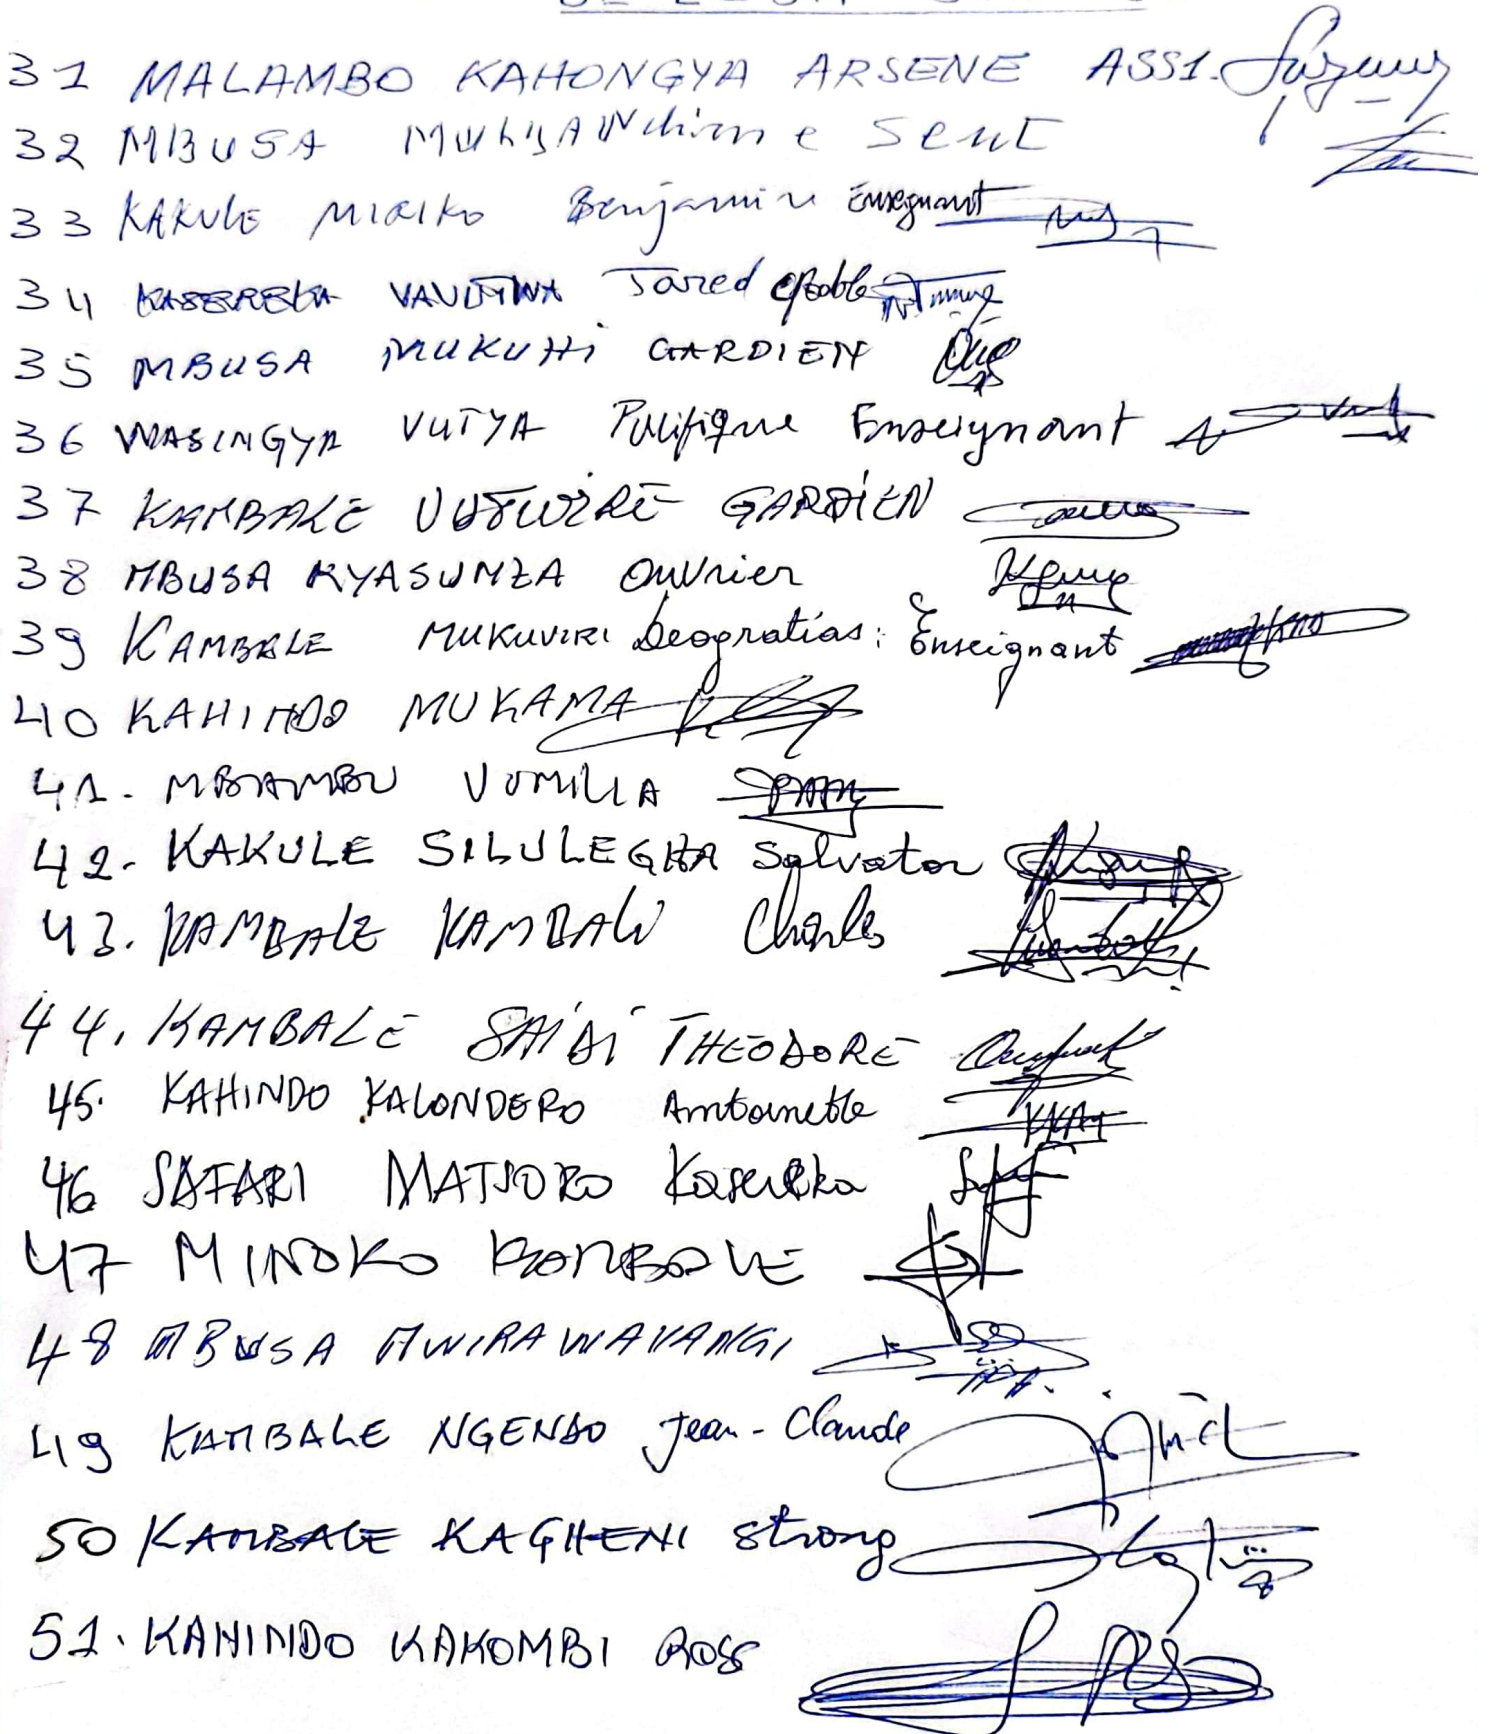 31 MALAMBO KAHONGYA ARSENE ASS1.
32 MBUSA SENT
33 KAKULE MIRIKO Benjamin Enseignant
34 KASEREKA Jared
35 MBUSA MUKUHI GARDIEN
36 WASINGYA VUTYA Pacifique Enseignant
37 KAMBALE VUTWIRE GARDIEN
38 MBUSA KYASUMZA Ouvrier
39 KAMBALE MUKUVIRI Deogratias: Enseignant
40 KAHINDO MUKAMA
41. MBAMBU VUMILIA
42. KAKULE SILULEGHA Salvator
43. KAMBALE KAMBALI Charles
44. KAMBALE SAIDI THEODORE
45. KAHINDO KALONDERO Antoinette
46 SAFARI MATSORO Kasereka
47 MINOKO KAMBALE
48 MBUSA MWIRAWAVANGI
49 KAMBALE NGENDO Jean-Claude
50 KAMBALE KAGHENI Strong
51. KAHINDO KAKOMBI ROSE